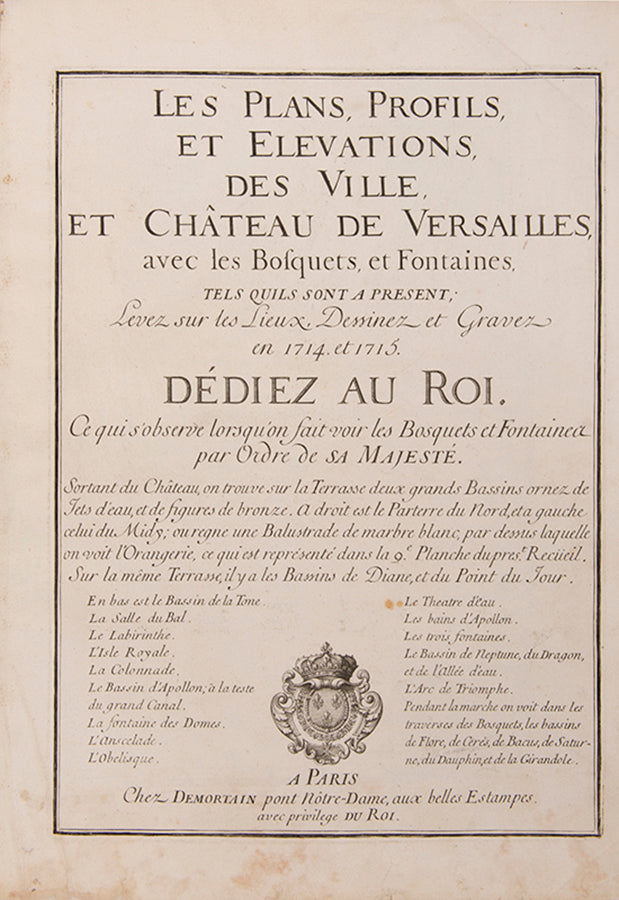 LES PLANS, PROFILS,
ET ELEVATIONS,
DES VILLE,
ET CHÂTEAU DE VERSAILLES,
avec les Bosquets, et Fontaines,
TELS QUILS SONT A PRESENT;
Levez sur les Lieux, Dessinez et Gravez
en 1714. et 1715.
DÉDIEZ AU ROI.
Ce qui s'observe lorsqu'on fait voir les Bosquets et Fontaines
par Ordre de SA MAJESTÉ.
Sortant du Château, on trouve sur la Terrasse deux grands Bassins ornez de
Jets d'eau, et de figures de bronze. A droit est le Parterre du Nord, et a gauche
celui du Midy; ou regne une Balustrade de marbre blanc, par dessus laquelle
on voit l'Orangerie, ce qui est représenté dans la 9e. Planche du presr. Recüeil.
Sur la même Terrasse, il y a les Bassins de Diane, et du Point du Jour.
En bas est le Bassin de la Tone.
La Salle du Bal.
Le Labirinthe.
L'Isle Royale.
La Colonnade.
Le Bassin d'Apollon, à la teste
du grand Canal.
La fontaine des Domes.
L'Anscelade.
L'Obelisque.
Le Theatre d'eau.
Les bains d'Apollon.
Les trois fontaines.
Le Bassin de Neptune, du Dragon,
et de l'Allée d'eau.
L'Arc de Triomphe.
Pendant la marche on voit dans les
traverses des Bosquets, les bassins
de Flore, de Cerés, de Bacus, de Satur-
ne, du Dauphin, et de la Girandole.
A PARIS
Chez DEMORTAIN pont Nôtre-Dame, aux belles Estampes.
avec privilege DU ROI.